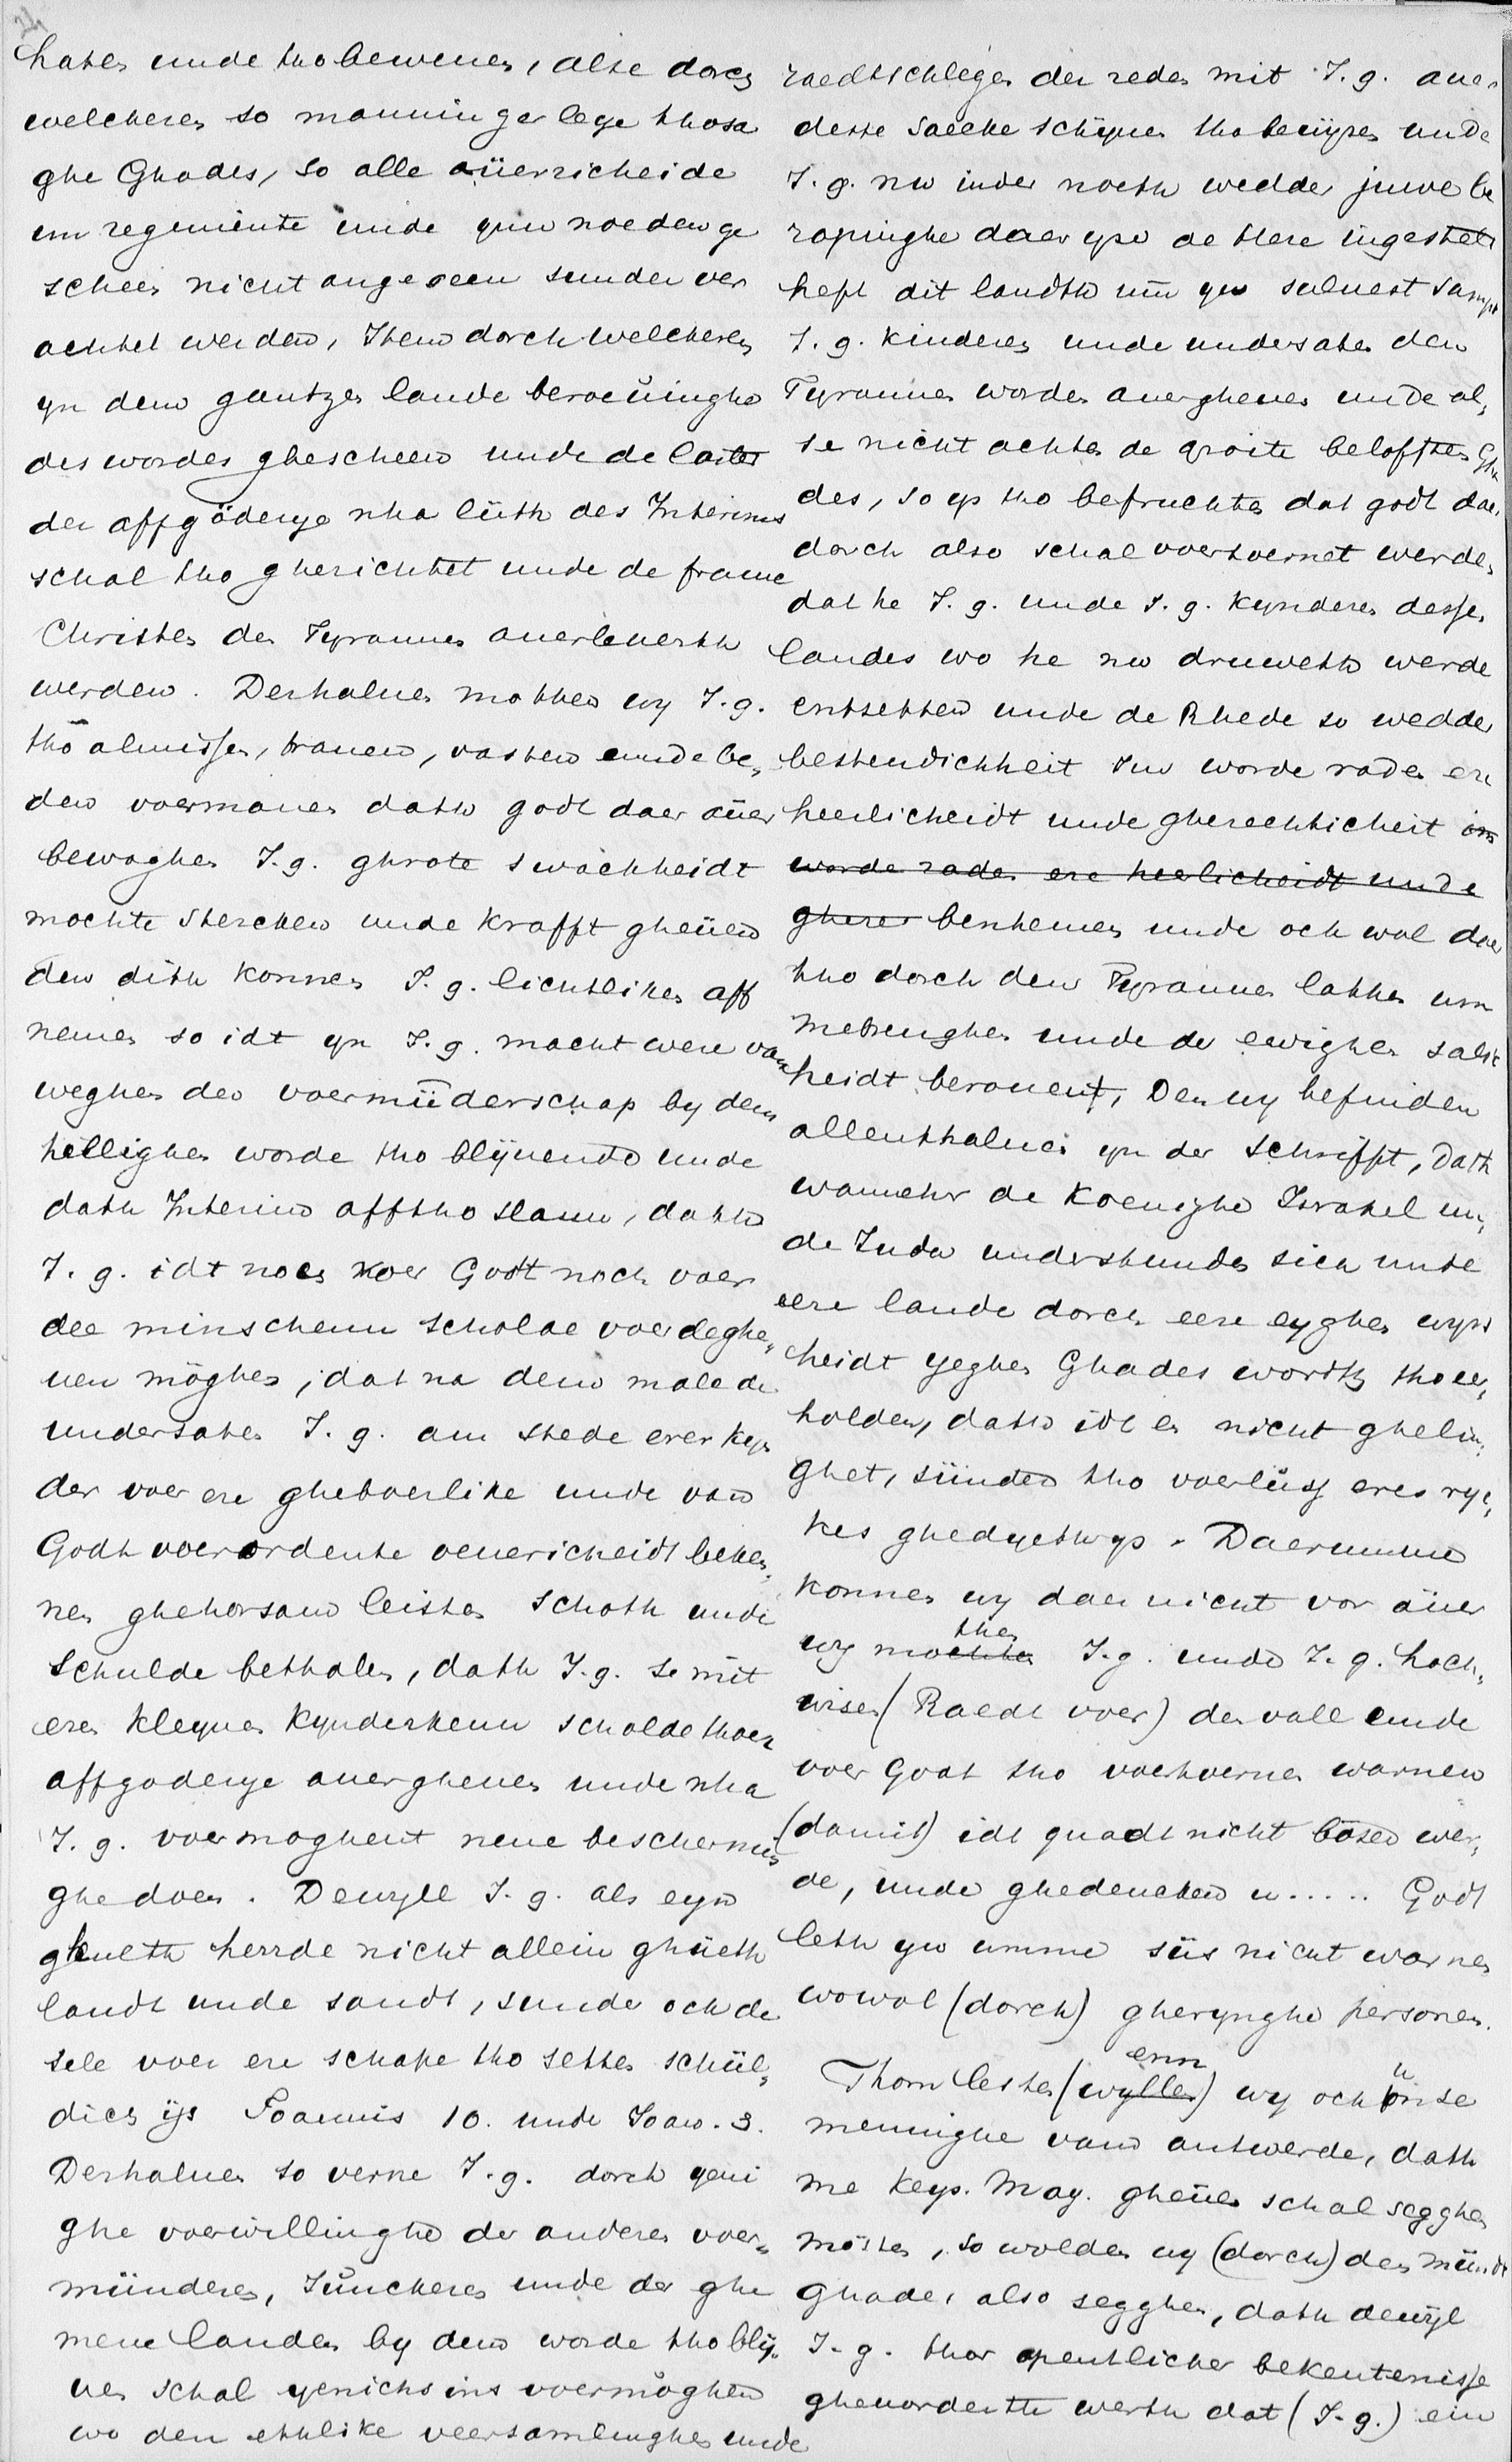 haten unde tho bewenen, alse dorch
welcheren so manninger leye thosa
ghe Ghades, so alle aüerricheide
em regimente unde ynn noeden ge
scheen nicht angeseen sunder ver
achtet werden, Item dorch welcheren
yn dem gantzen lande beroeůinghe
des wordes ghescheen unde de laster
der affgöderye nha lüth des Interims
schal tho gherichtet unde de frame
Christen den Tyrannen auerleuerth
werden. Derhaluen mothen wy J. g.
tho almissen, trauen, vasten unde be,
den voermanen dath godt daer aüer
bewoghen J. g. ghrote swackheidt
mochte stercken unde krafft gheüen
den dith konnen J. g. lichtliken aff
nemen so idt yn J. g. macht were van
weghen der voermüderschap by dem
hellighen worde tho blÿuende unde
dath Interim afftho slann, dath
J. g. idt noch voer Godt noch voer
dee minschenn scholde voerdeghe,
uen möghen, dat na dem male de
undersaten J. g. am stede erer kyn
der voer ere gheboerlike unde van
Godt voerordente oeuericheidt beken,
nen ghehorsam leisten schoth unde
schulde bethalen, dath J. g. se mit
eren kleynen kynderkenn scholde thoer
affgoderye auergheuen unde nha
J. g. voermoghent nene beschermin
ghe doen. Dewyle J. g. als eyn
ghueth herrde nicht allein ghüeth
landt unde sandt, sunder och de
sele voer ere schape tho setten schül,
dich ÿs Joannis 10. unde Joan. 3.
Derhaluen so verne J. g. dorch yeni
ghe voerwillinghe der anderen voer,
münderen, Jünckeren unde der ghe
mene landen by dem worde tho blÿ,
uen schal yenichsins voermöghen
wo den ethlike veersamlinghen unde
raedtschlegen der reden mit J. g. auer
desse saecke schynen tho bewysen unde
J. g. nw inder noeth wedder juwe be
ropinghe daer yw de Here ingesteth
heft dit landth um yw suluest sampt
J. g. kinderen unde undersaten den
Tyrannen worden auerghenen unde al,
se nicht achten de groite belofften Gha
des, so ys tho befruchten dat godt daer
dorch also schal voertoernet werden
dat he J. g. unde J. g. kynderen desses
landes wo he nw druweth werde
entsetten unde de Rhede so wedder
bestendichheit Im worde raden ere
heerlicheidt unde gherechticheit im
worde raden ere heerlicheidt unde
gherer benhemen unde och wol daer
tho dorch den Tyrannen lathen um
mebrenghen unde der ewighen salic
heidt berouent, Den wy befinden
allenthaluen yn der schrifft, dath
wannehr de Koenighe Israhel un,
de Juda understunden sich unde
eere lande dorch eere eyghen wys
heidt yeghen Ghades wordt tho er,
holden, dath idt en nicht ghelin,
ghet, sünder tho voerlüs eres ryc,
kes ghedyeth ys. Daerumme
konnen wy daer nicht vor aüer
then
wy mochten J. g. unde J. g. hoch,
wisen (Raedt voer) der vall unde
voer Godt tho voertoernen warnen
(damit) idt quadt nicht böser wer,
de, unde ghedencken w..... Godt
leth yw umme süs nicht warnen
wowol (dorch) gherynghe personen.
enn u
Thom lesten (wyllen) wy och onse
meninghe vam antwerde, dath
me Keys. May. gheüen schal segghen
mosten, so wolden wy (dorch) den mündt
Ghades also segghen, dath dewÿl
J. g. thor openthlicher bekentenisse
gheuorderth werth dat (J. g.) ein